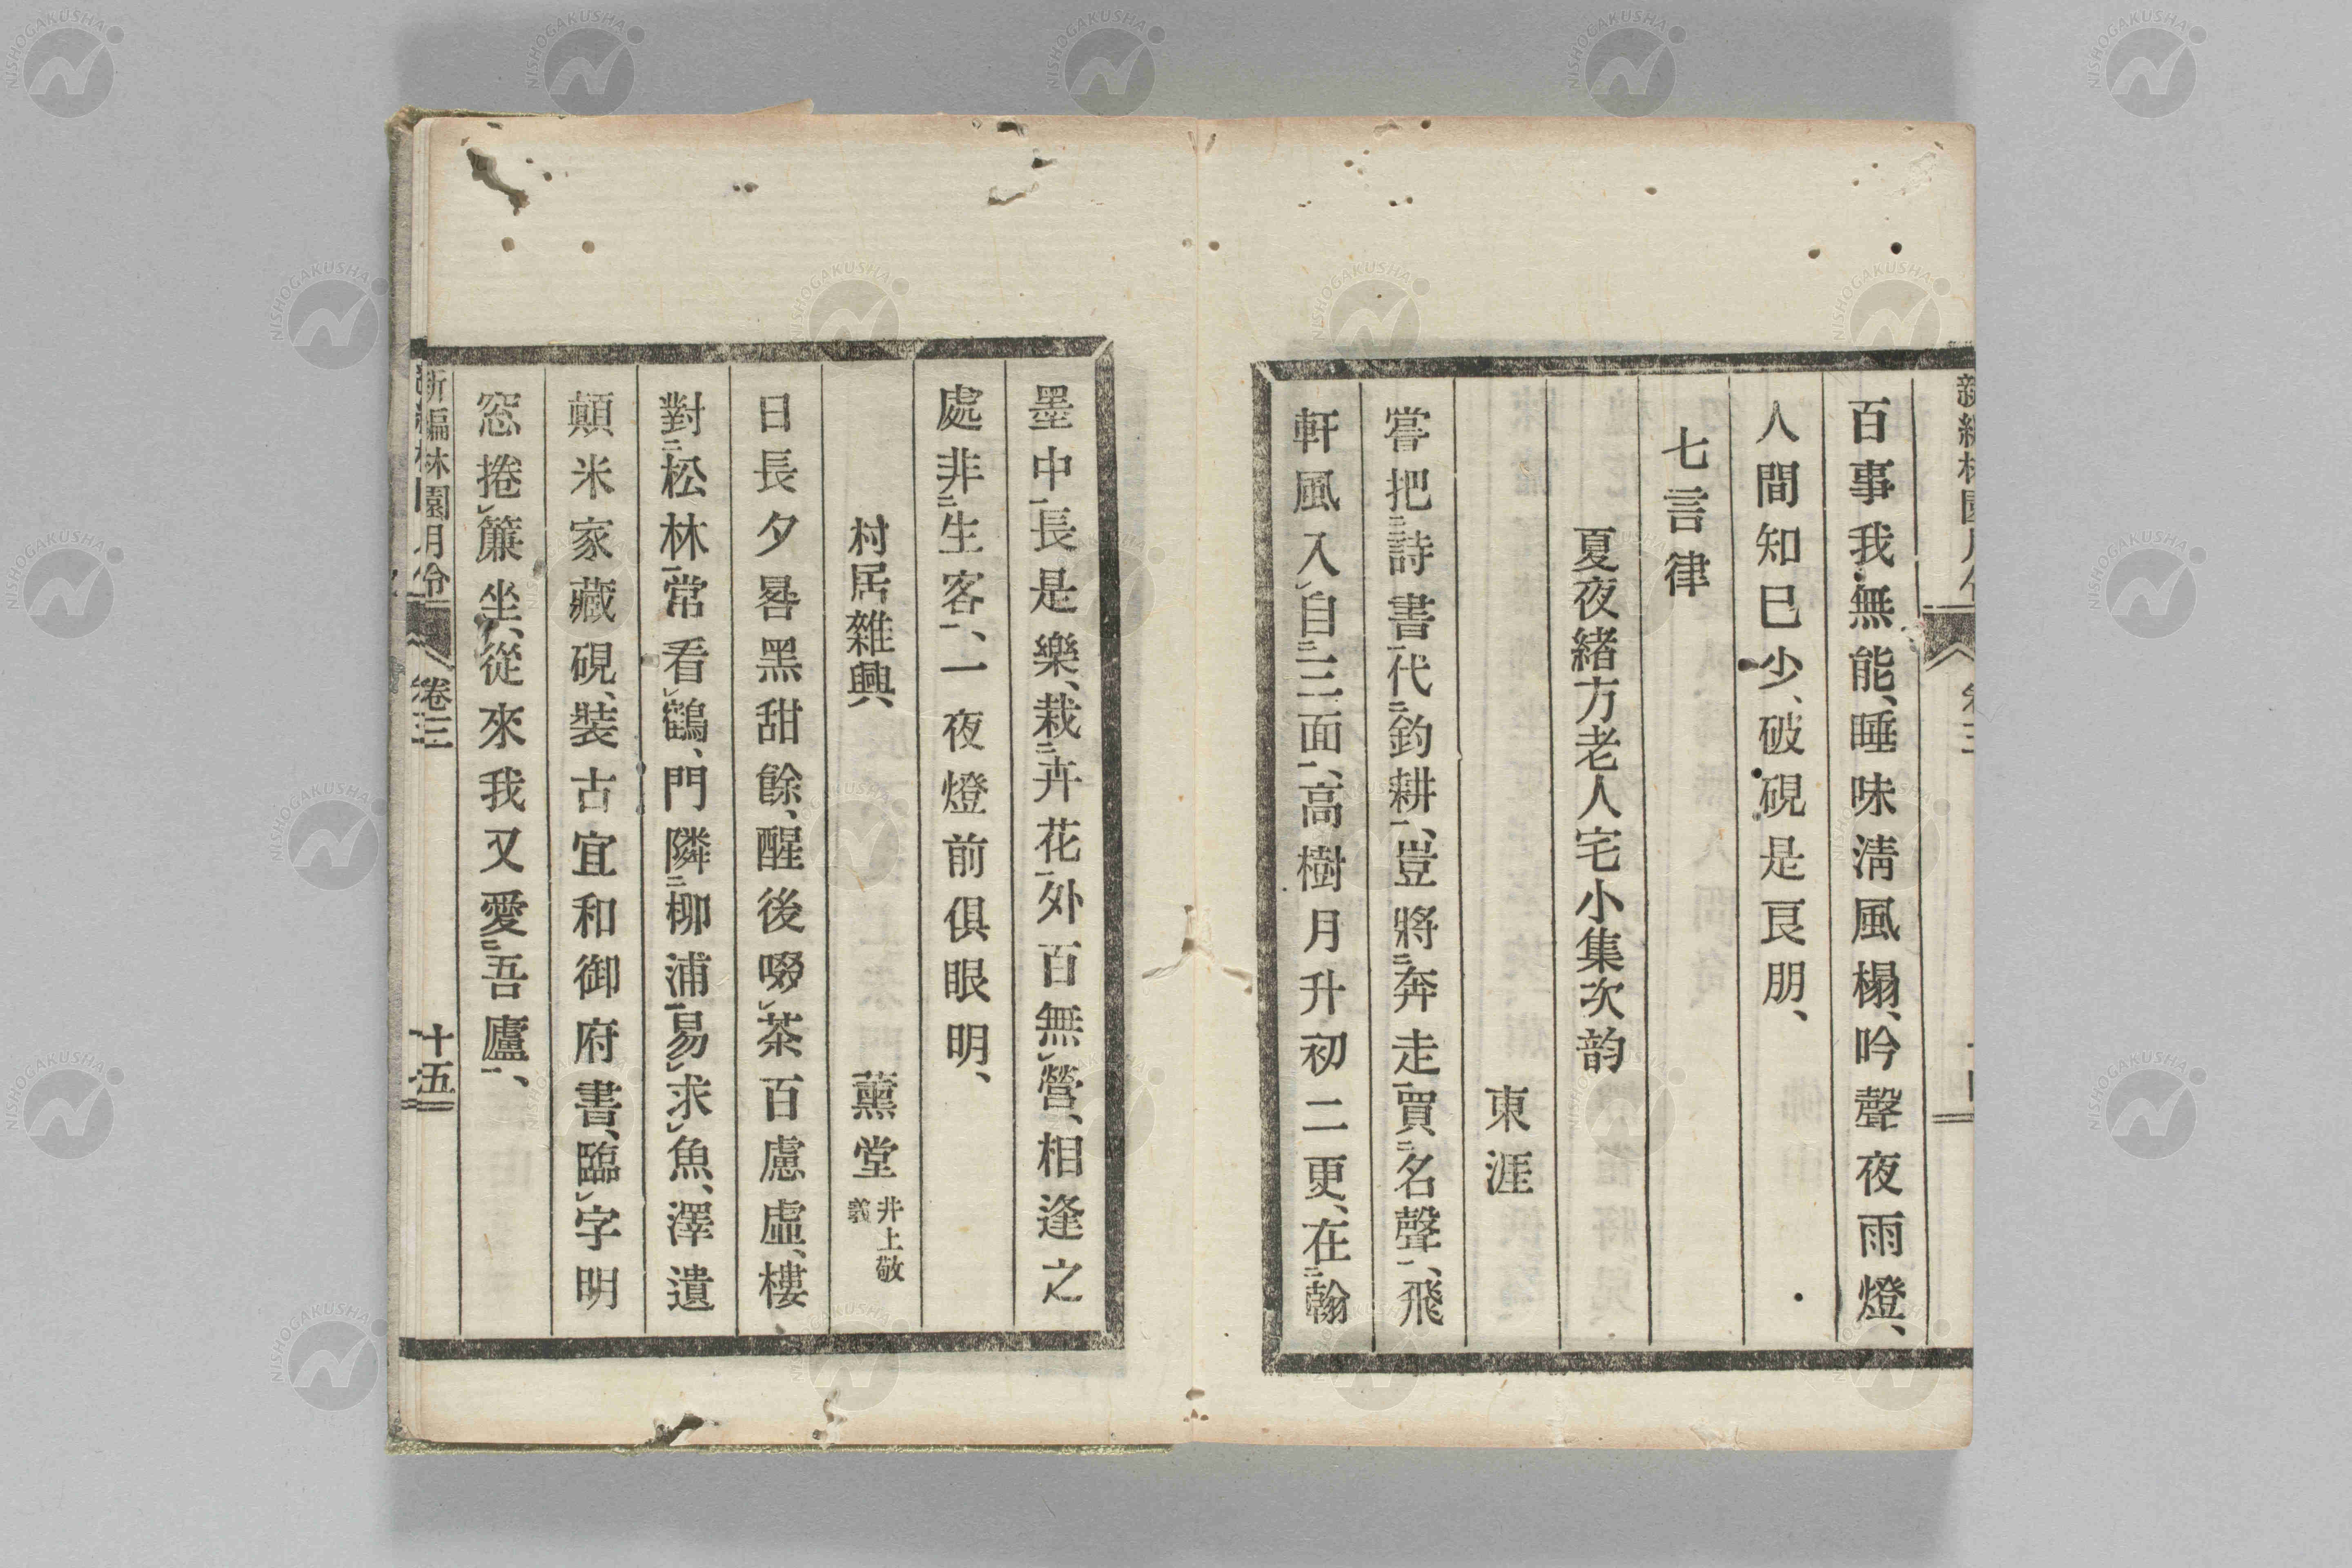 百事我無能、睡味淸風榻、吟聲夜雨燈、
人間知已少、破硯是良朋、
七言律
夏夜緒方老人宅小集次韵
東涯
嘗把㆓詩書㆒代㆓釣耕㆒、豈將㆓奔走㆒買㆓名聲㆒、飛
軒風入㆑自㆓三面㆒、高樹月升初二更、在㆓翰
墨中㆒長是樂、栽㆓卉花㆒外百無㆑營、相逢之
處非㆓生客㆒、一夜燈前俱眼明、
村居雜興
薰堂 井上敬義
日長夕晷黑甜餘、醒後啜㆑茶百慮虛、樓
對㆓松林㆒常看㆑鶴、門隣㆓柳浦㆒易㆑求㆑魚、澤遺
顛米家藏硯、裝古宜和御府書、臨㆑字明
窓捲㆑簾坐、從來我又愛㆓吾廬㆒、
新編林園月令 卷三 十五
NISHOGAKUSHA